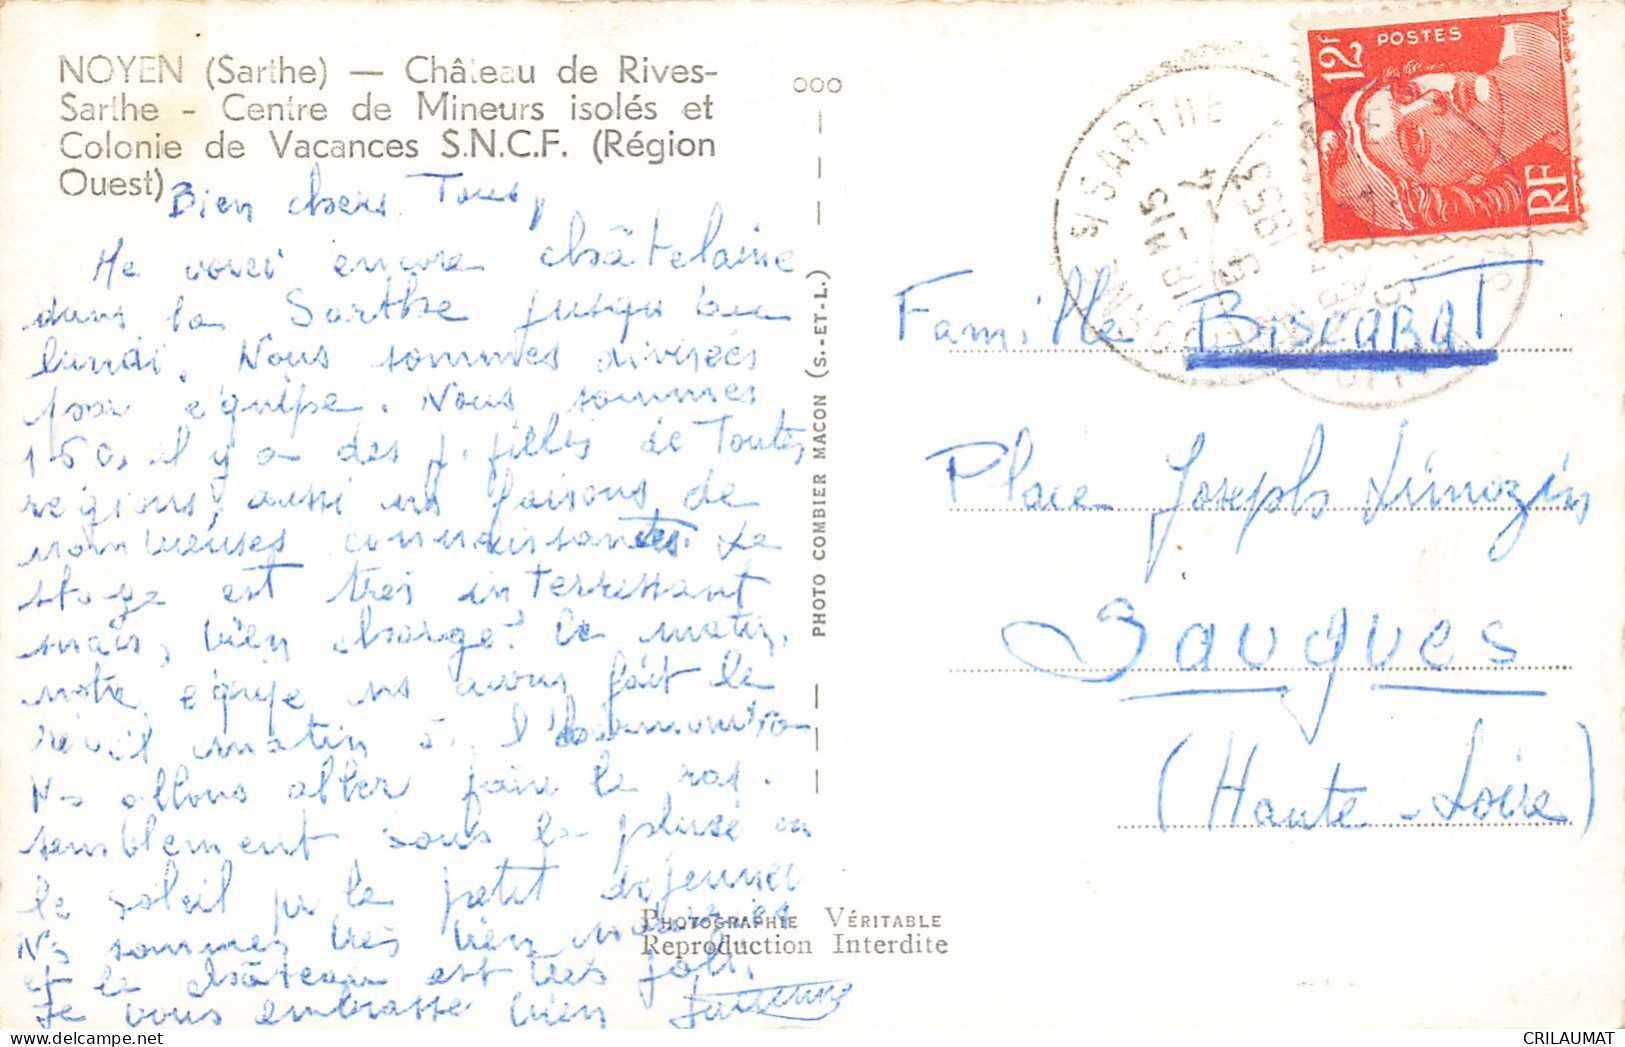 NOYEN (Sarthe) — Château de Rives-
Sarthe - Centre de Mineurs isolés et
Colonie de Vacances S.N.C.F. (Région
Ouest)
Bien chers Tous,
Me voici encore châtelaine
dans la Sarthe jusqu'au
lundi. Nous sommes divisées
par équipe. Nous sommes
150, il y a des j. filles de Toutes
régions, aussi ns faisons de
nombreuses connaissances. Le
stage est très interressant
mais, bien chargé. Ce matin,
notre équipe ns avons fait le
réveil matin à l'harmonica
Ns allons aller faire le ras-
semblement sous la pluie ou
le soleil pr le petit déjeuner
Ns sommes très bien nourries
et le château est très joli.
Je vous embrasse bien
OOO
PHOTO COMBIER MACON (S.-ET-L.)
PHOTOGRAPHIE VÉRITABLE
Reproduction Interdite
POSTES
12F
RF
S/SARTHE
18 H 15
1953
Famille BISCARAT
Place Joseph Limozin
Saugues
(Haute-Loire)
CRILAUMAT